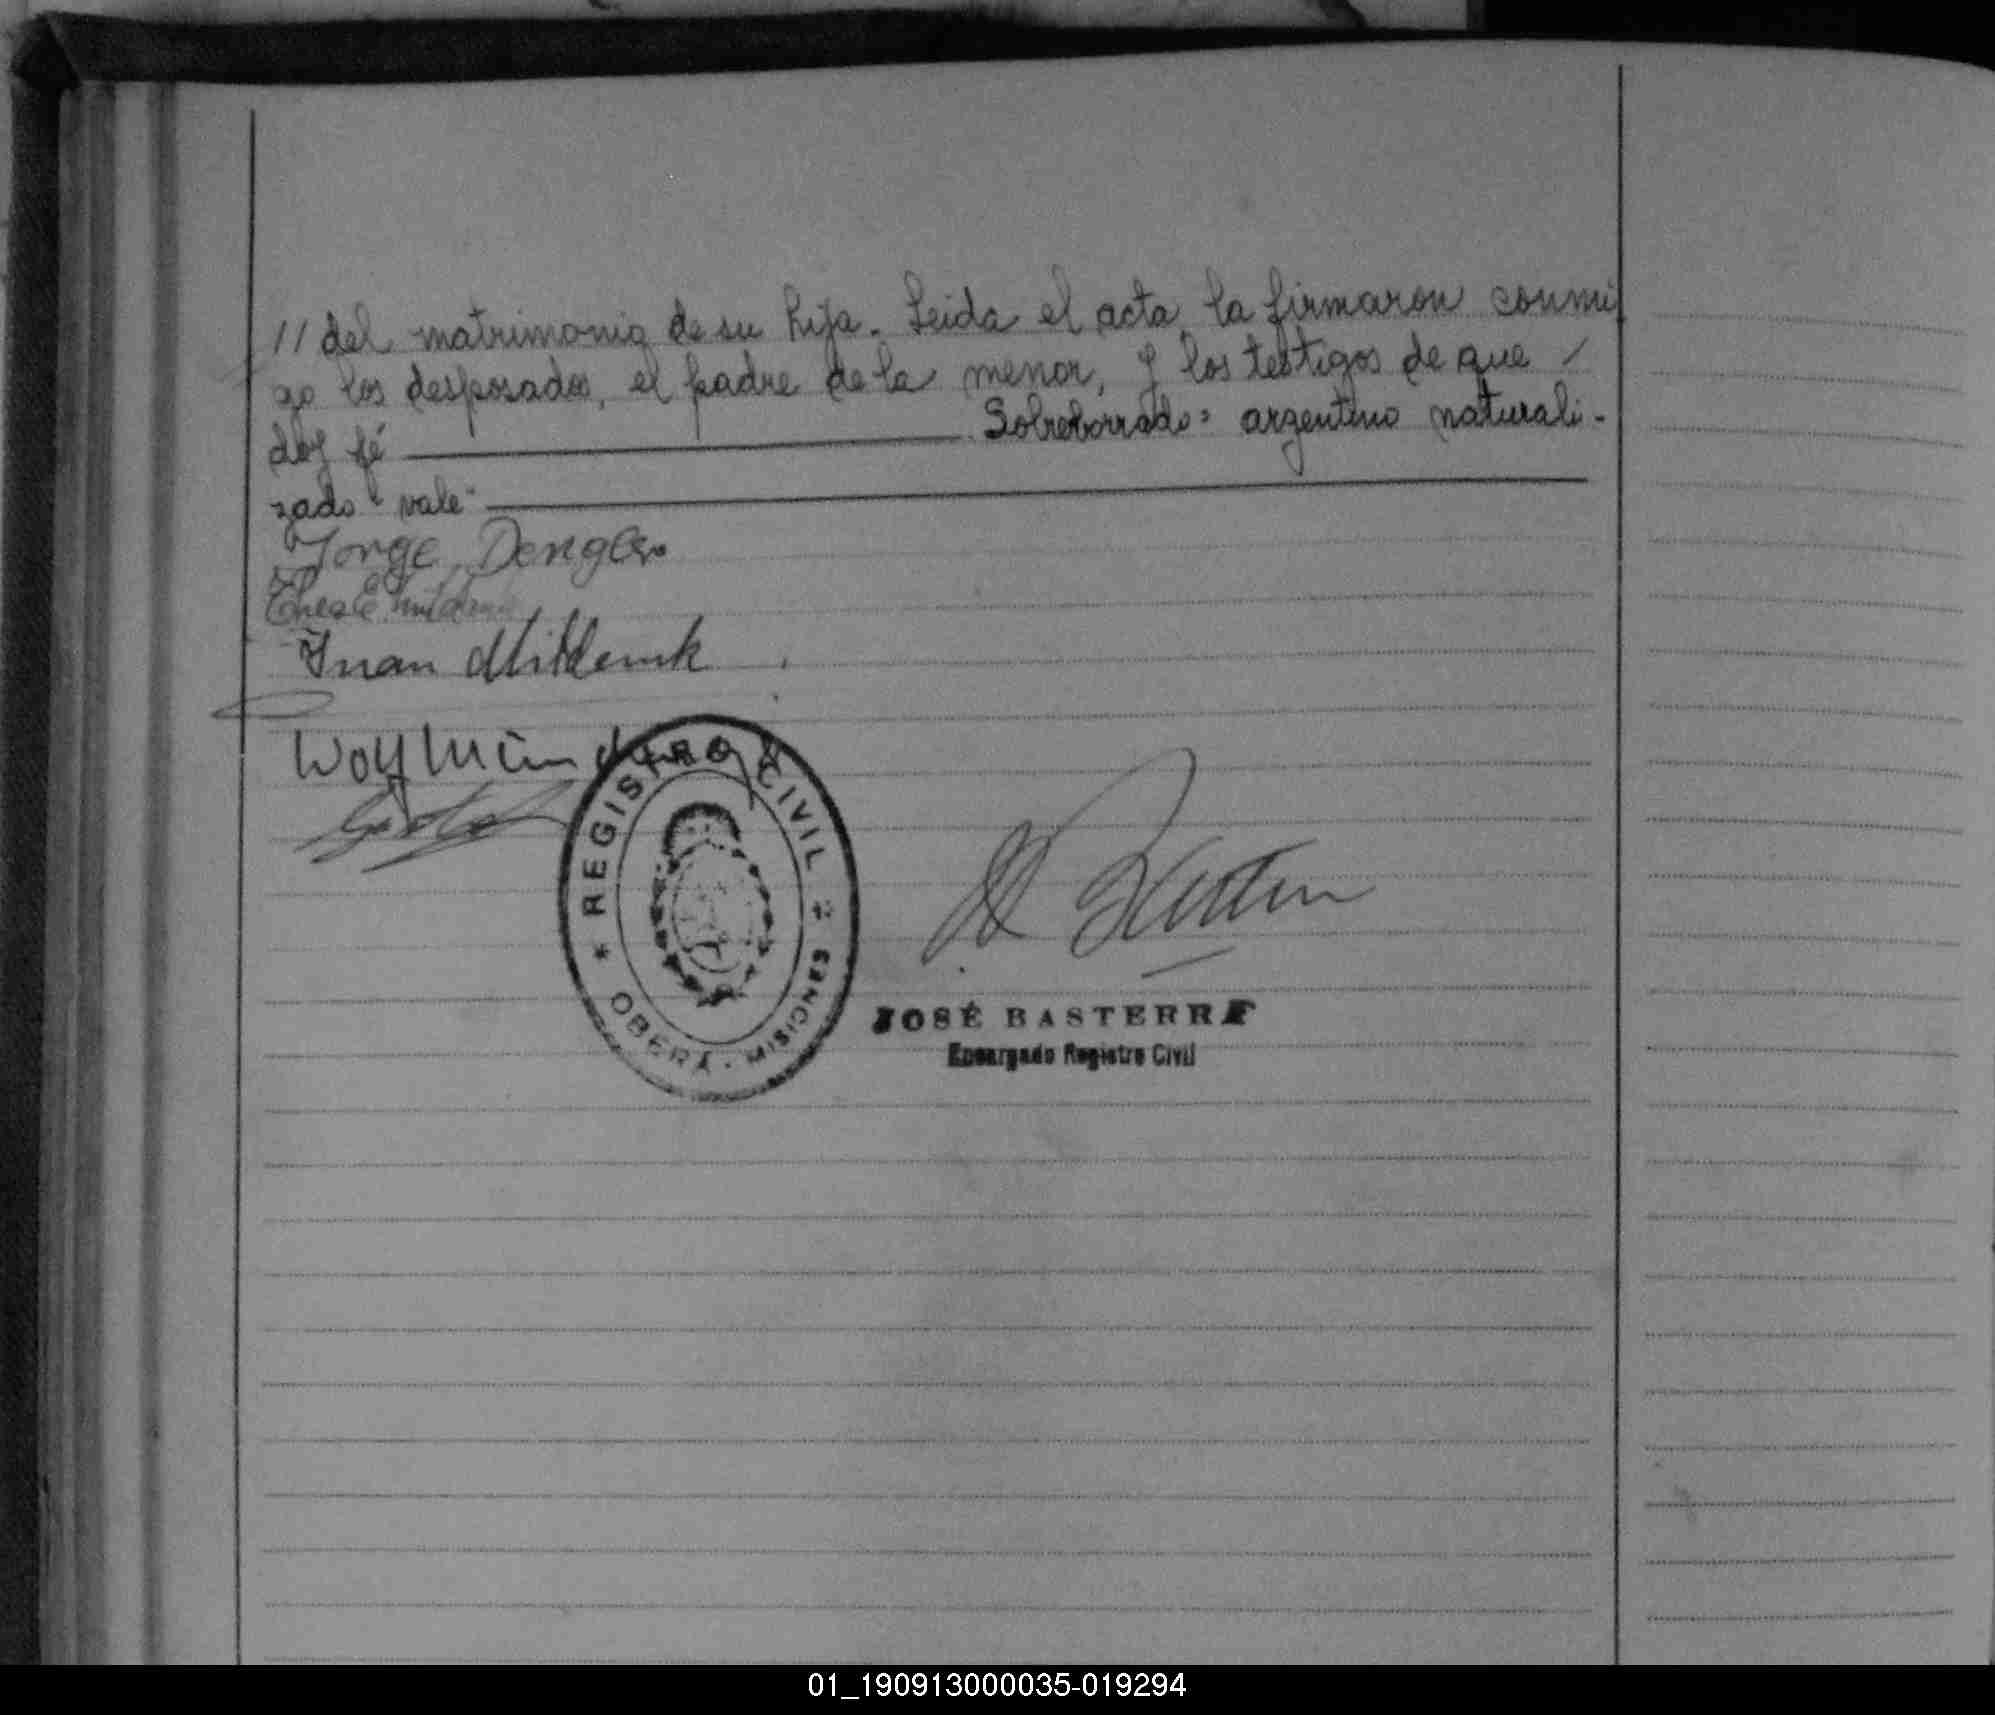 // del matrimonio de su hija. Leida el acta la firmaron conmi
go los desposados, el padre de la menor, y los testigos de que /
doy fé Sobreborrado= argentino naturali-
zado "vale"
Jorge Dengler
Juan
Wolf
REGISTRO CIVIL
OBERÁ - MISIONES
JOSÉ BASTERRA
Encargado Registro Civil
01_190913000035-019294